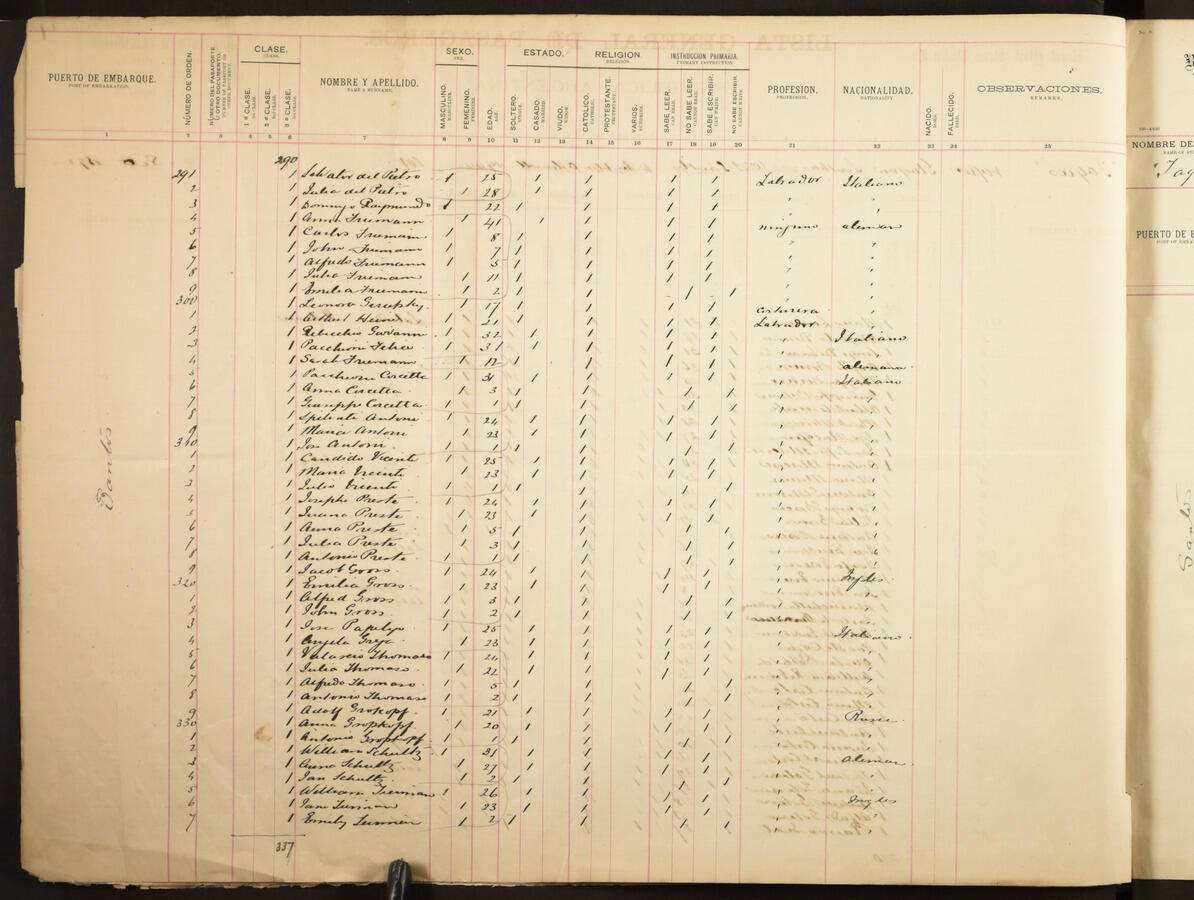 PUERTO DE EMBARQUE.
PORT OF EMBARKATION.
NÚMERO DE ORDEN.
NÚMERO DEL PASAPORTE Ú OTRO DOCUMENTO.
CLASE.
CLASS.
1ª CLASE.
2ª CLASE.
3ª CLASE.
NOMBRE Y APELLIDO.
NAME & SURNAME.
SEXO.
SEX.
MASCULINO.
MASCULINE.
FEMENINO.
FEMININE.
EDAD.
AGE.
ESTADO.
SOLTERO.
SINGLE.
CASADO.
MARRIED.
VIUDO.
WIDOW.
RELIGION.
RELIGION.
CATOLICO.
CATHOLIC.
PROTESTANTE.
PROTESTANT.
VARIOS.
INSTRUCCIÓN PRIMARIA.
PRIMARY INSTRUCTION
SABE LEER.
CAN READ.
NO SABE LEER.
CANNOT READ.
SABE ESCRIBIR.
CAN WRITE.
NO SABE ESCRIBIR
CANNOT WRITE.
PROFESION.
PROFESSION.
NACIONALIDAD.
NATIONALITY.
NACIDO.
BORN.
FALLECIDO.
DIED.
OBSERVACIONES.
REMARKS.
1 2 3 4 5 6 7 8 9 10 11 12 13 14 15 16 17 18 19 20 21 22 23 24 25
290
291 1 Salvator del Pietro 1 25 1 1 1 1 Labrador Italiano
2 1 Julia del Pietro 1 28 1 1 1 1 " "
3 1 Domingo Raymundo 1 22 1 1 1 1 " "
4 1 Anna Friemann 1 41 1 1 1 1 ninguno aleman
5 1 Carlos Friemann 1 8 1 1 1 1 " "
6 1 John Friemann 1 7 1 1 1 1 " "
7 1 Alfredo Friemann 1 5 1 1 1 1 " "
8 1 Julia Friemann 1 11 1 1 1 1 " "
9 1 Emilia Friemann 1 2 1 1 1 1 " "
300 1 Leonora 1 17 1 1 1 1 costurera "
1 1 1 21 1 1 1 1 Labrador "
2 1 Giovanni 1 32 1 1 1 1 " Italiano
3 1 Pacchioni 1 31 1 1 1 1 " "
4 1 Sarah Friemann 1 12 1 1 1 1 " alemana
5 1 Pacchioni Corcetta 1 31 1 1 1 1 " Italiano
6 1 Anna Corcetta 1 3 1 1 1 1 " "
7 1 Giuseppe Corcetta 1 1 1 1 1 1 " "
8 1 Antoni 1 24 1 1 1 1 " "
9 1 Maria Antoni 1 23 1 1 1 1 " "
310 1 Jose Antoni 1 1 1 1 1 1 " "
1 1 Candido Vicente 1 25 1 1 1 1 " "
2 1 Maria Vicente 1 23 1 1 1 1 " "
3 1 Julio Vicente 1 1 1 1 1 1 " "
4 1 Josepho Preste 1 24 1 1 1 1 " "
5 1 Juana Preste 1 23 1 1 1 1 " "
6 1 Anna Preste 1 5 1 1 1 1 " "
7 1 Julia Preste 1 3 1 1 1 1 " "
8 1 Antonio Preste 1 1 1 1 1 1 " "
9 1 Jacob Gross 1 24 1 1 1 1 " Ingles
320 1 Emilia Gross 1 23 1 1 1 1 " "
1 1 Alfred Gross 1 3 1 1 1 1 " "
2 1 John Gross 1 2 1 1 1 1 " "
3 1 Jose 1 25 1 1 1 1 " Italiano
4 1 Angela 1 23 1 1 1 1 " "
5 1 Thomaso 1 24 1 1 1 1 " "
6 1 Julia Thomaso 1 22 1 1 1 1 " "
7 1 Alfredo Thomaso 1 5 1 1 1 1 " "
8 1 Antonio Thomaso 1 2 1 1 1 1 " "
9 1 Adolf Gropkopf 1 21 1 1 1 1 " Russe
330 1 Anna Gropkopf 1 20 1 1 1 1 " "
1 1 Antonio Gropkopf 1 1 1 1 1 1 " "
2 1 William Schultz 1 31 1 1 1 1 " Aleman
3 1 Anna Schultz 1 27 1 1 1 1 " "
4 1 Jan Schultz 1 2 1 1 1 1 " "
5 1 William 1 26 1 1 1 1 " Ingles
6 1 Jane 1 23 1 1 1 1 " "
7 1 Emily 1 2 1 1 1 1 " "
337
Santos
NOMBRE DE
PUERTO DE E
Santos